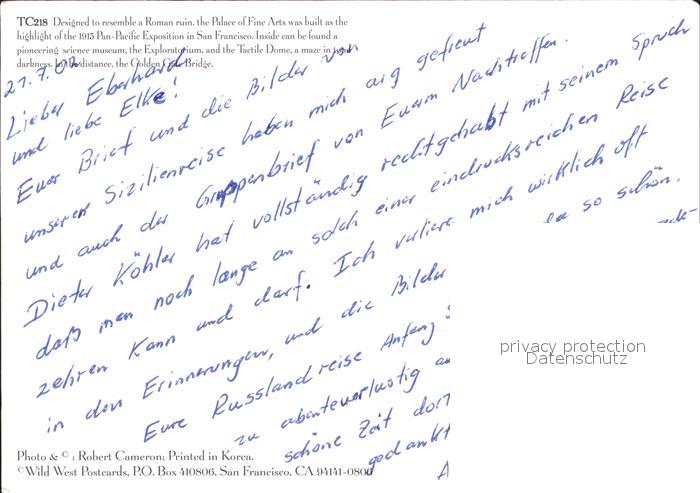 TC218 Designed to resemble a Roman ruin, the Palace of Fine Arts was built as the
highlight of the 1915 Pan-Pacific Exposition in San Francisco. Inside can be found a
pioneering science museum, the Exploratorium, and the Tactile Dome, a maze in total
darkness. In the distance, the Golden Gate Bridge.
Lieber Eberhard
und liebe Elke!
Euer Brief und die Bilder von
unserer Sizilienreise haben mich arg gefreut
und auch der Gruppenbrief von Eurem Nachtreffen.
Dieter Köhler hat vollständig rechtgehabt mit seinem Spruch
daß man noch lange an solch einer eindrucksreichen Reise
zehren kann und darf. Ich verliere mich wirklich oft
in den Erinnerungen, und die Bilder so schön.
Eure Russlandreise Anfang
zu abenteuerlustig
schöne Zeit dort
gedankt
privacy protection
Datenschutz
Photo & © : Robert Cameron; Printed in Korea.
©Wild West Postcards, P.O. Box 410806, San Francisco, CA 94141-0806